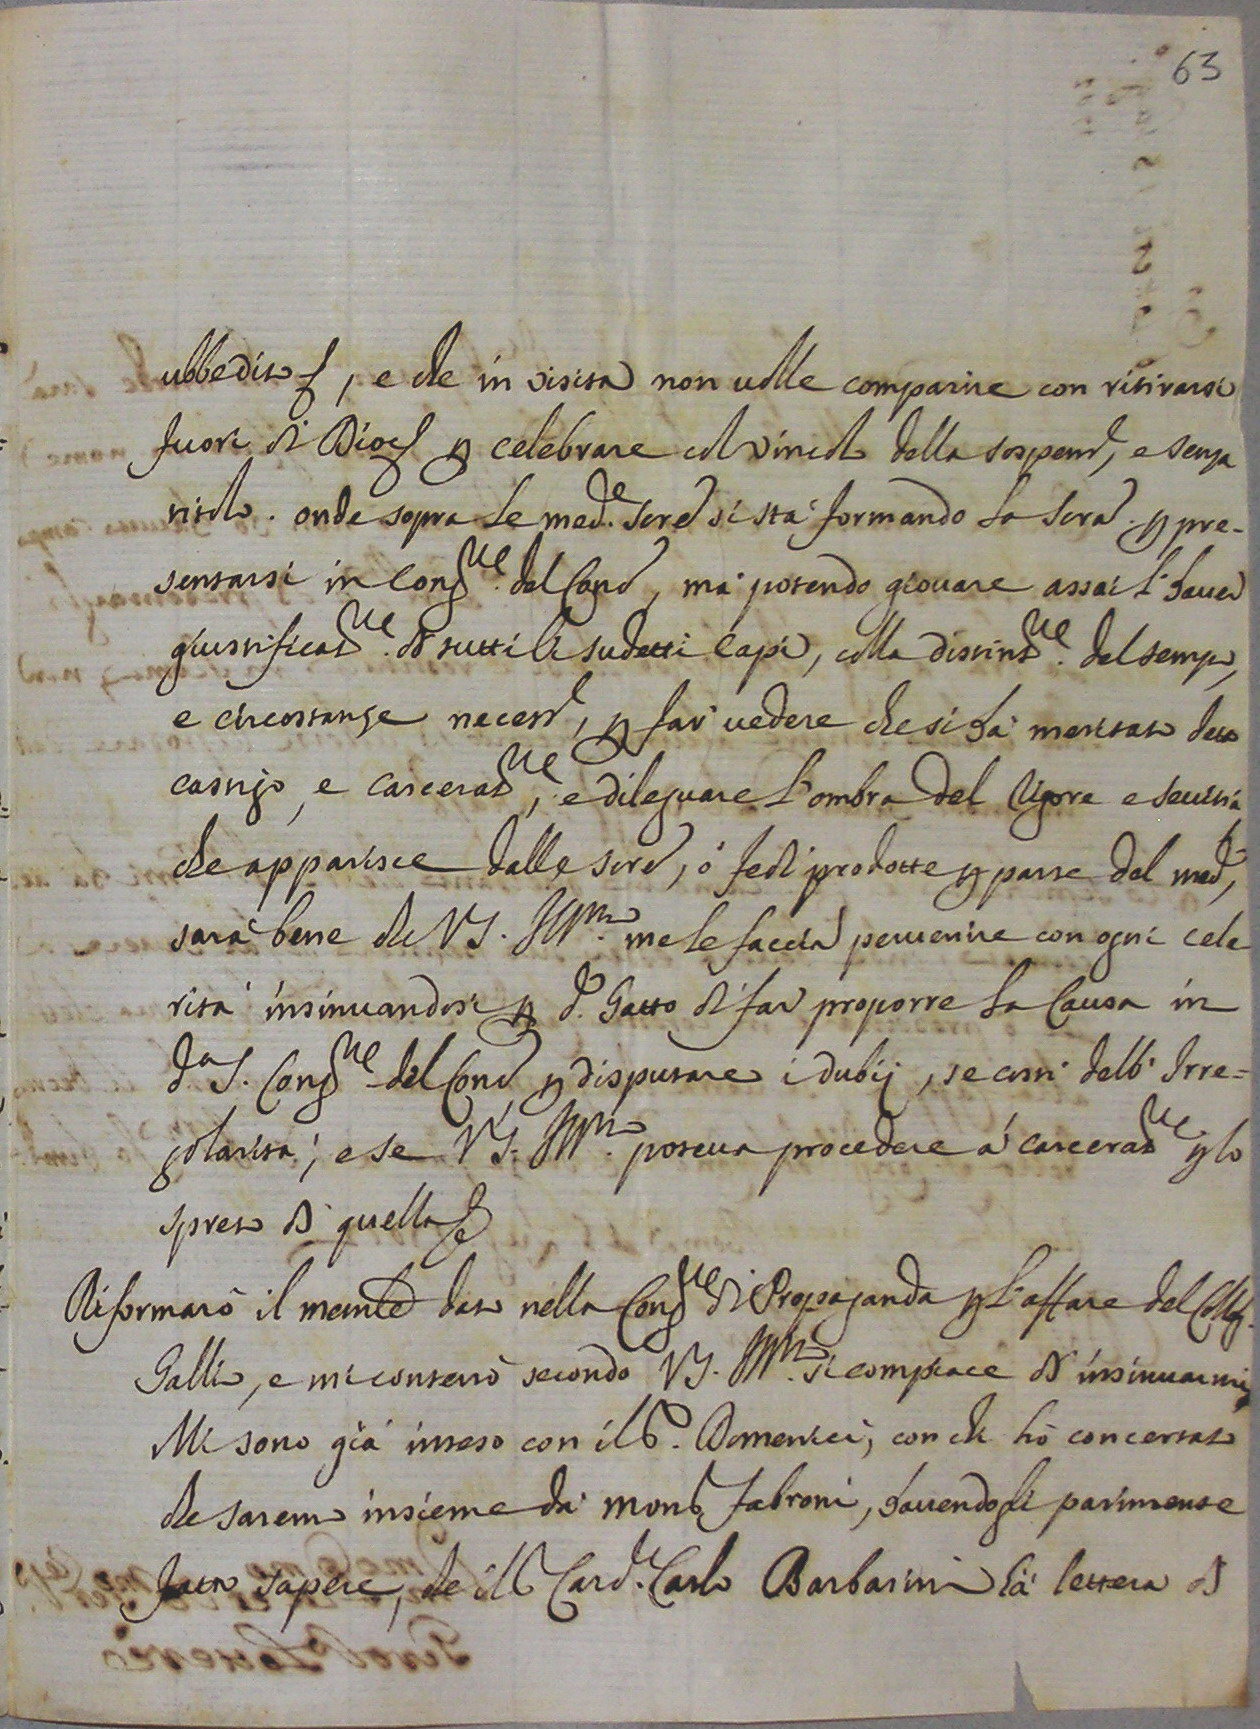 63
ubbedito, e che in visita non volle comparire con ritirarsi
fuori di Dioc. p celebrare col vincolo della sospens., e senza
titolo. onde sopra le med.e scre si sta' formando la scra. p pre-
sentarsi in Cong.ne del Conc., ma' potendo giovare assai l'haver
giustificat.ne di tutti li sudetti Capi, colla distint.ne del tempo,
e circostanze necess., p far vedere che si hà meritato detto
castigo, e carcerat.ne, e dileguare l'ombra del rigore e sevitia
che apparisce dalle scre, ò fedi prodotte p parte del med.,
sarà bene che VS. Ill.ma me le faccia pervenire con ogni cele
rità insinuandosi p d.o Gatto di far proporre la Causa in
d.a S. Cong.ne del Conc. p disputare i dubij, se costi dell'Irre=
golarità, e se VS. Ill.ma poteva procedere à carcerat.ne p lo
spreto di quella
Riformarò il memle dato nella Cong.ne di Propaganda p l'affare del Colleg.
Gallio, e mi conterrò secondo VS. Ill.ma si compiace di insinuarmi
Mi sono già inteso con il P. Domenici, con chi hò concertato
che saremo insieme da' mons. Fabroni, havendogli parimente
fatto sapere, che il S. Card.le Carlo Barbarini hà lettera di